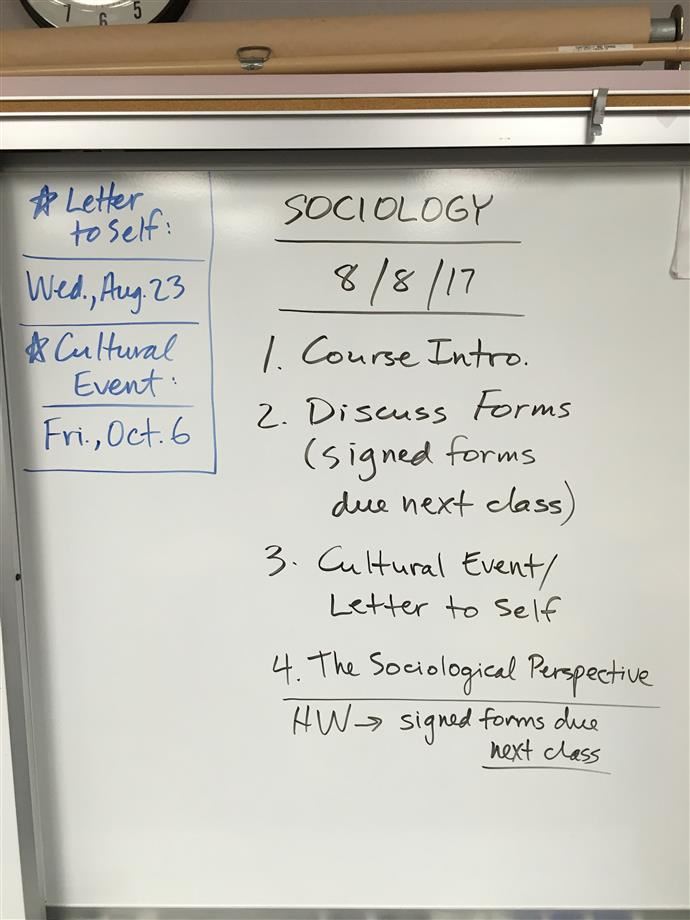 7 6 5
☆ Letter
to Self:
Wed., Aug. 23
☆ Cultural
Event:
Fri., Oct. 6
SOCIOLOGY
8/8/17
1. Course Intro.
2. Discuss Forms
(signed forms
due next class)
3. Cultural Event/
Letter to Self
4. The Sociological Perspective
HW → signed forms due
next class